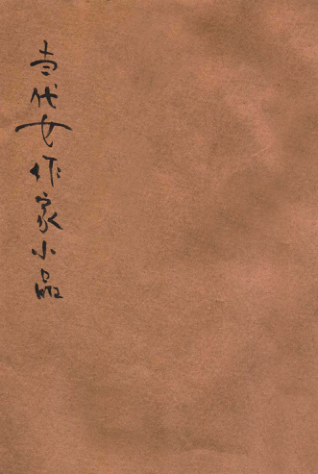 当代女作家小品